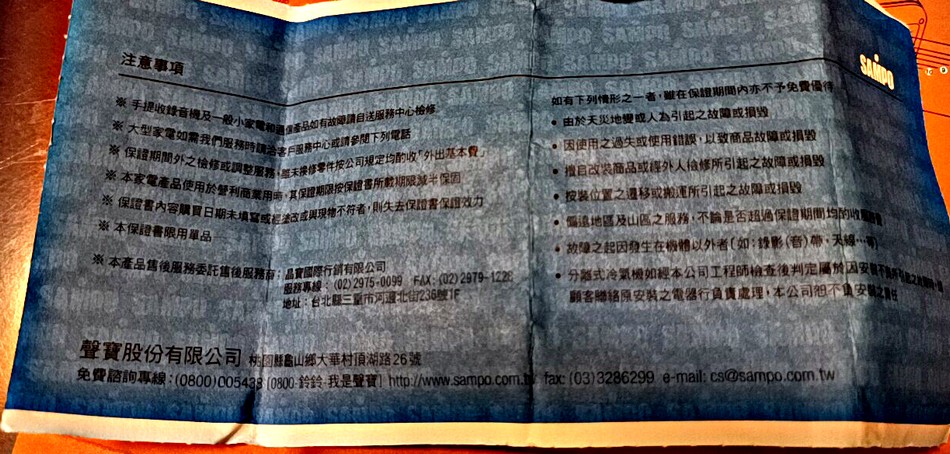 注意事項
SAMPO
※ 手提收錄音機及一般小家電和通信產品如有故障請自送服務中心檢修
※ 大型家電如需我們服務時請洽客戶服務中心或請參閱下列電話
※ 保證期間外之檢修或調整服務，雖未換修零件按公司規定均酌收「外出基本費」
※ 本家電產品使用於營利商業用時，其保證期限按保證書所載期限減半保固
※ 保證書內容購買日期未填寫或經塗改或與現物不符者，則失去保證書保證效力
※ 本保證書限用單品
※ 本產品售後服務委託售後服務商：品寶國際行銷有限公司
服務專線：(02)2975-0099 FAX:(02)2979-1228
地址：台北縣三重市河邊北街236號1F
如有下列情形之一者，雖在保證期間內亦不予免費優待
• 由於天災地變或人為引起之故障或損毀
• 因使用之過失或使用錯誤，以致商品故障或損毀
• 擅自改裝商品或經外人檢修所引起之故障或損毀
• 按裝位置之遷移或搬運所引起之故障或損毀
• 偏遠地區及山區之服務，不論是否超過保證期間均酌收
• 故障之起因發生在機體以外者(如：錄影(音)帶，天線…等)
• 分離式冷氣機如經本公司工程師檢查後判定屬於因安裝
顧客聯絡原安裝之電器行負責處理，本公司恕不負安裝之責任
聲寶股份有限公司 桃園縣龜山鄉大華村頂湖路26號
免費諮詢專線：(0800)005438 [0800-鈴鈴-我是聲寶] http://www.sampo.com.tw fax: (03)3286299 e-mail: cs@sampo.com.tw